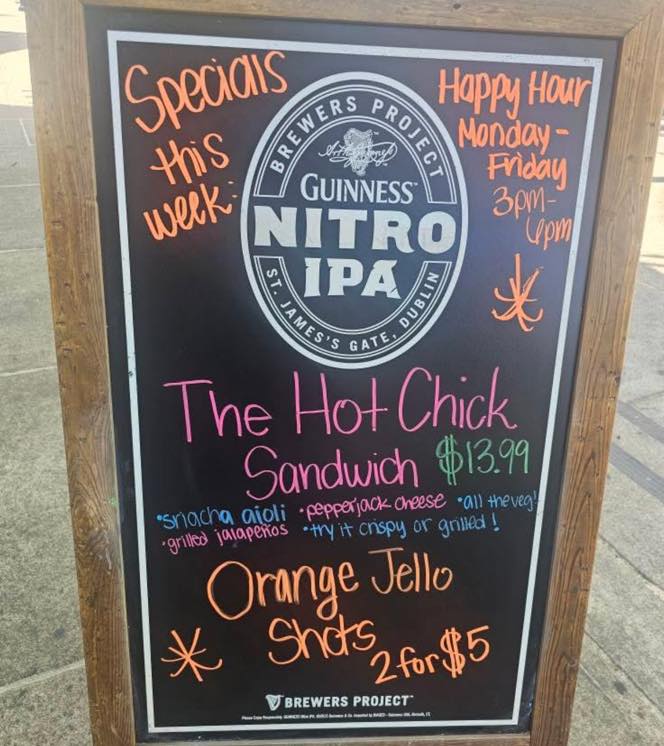 Specials
this
week:
Happy Hour
Monday -
Friday
3pm-
6pm
BREWERS PROJECT
GUINNESS™
NITRO
IPA
ST. JAMES'S GATE, DUBLIN
The Hot Chick
Sandwich $13.99
•sriacha aioli •pepperjack cheese •all the veg!
•grilled jalapeños •try it crispy or grilled!
Orange Jello
Shots
2 for $5
BREWERS PROJECT™